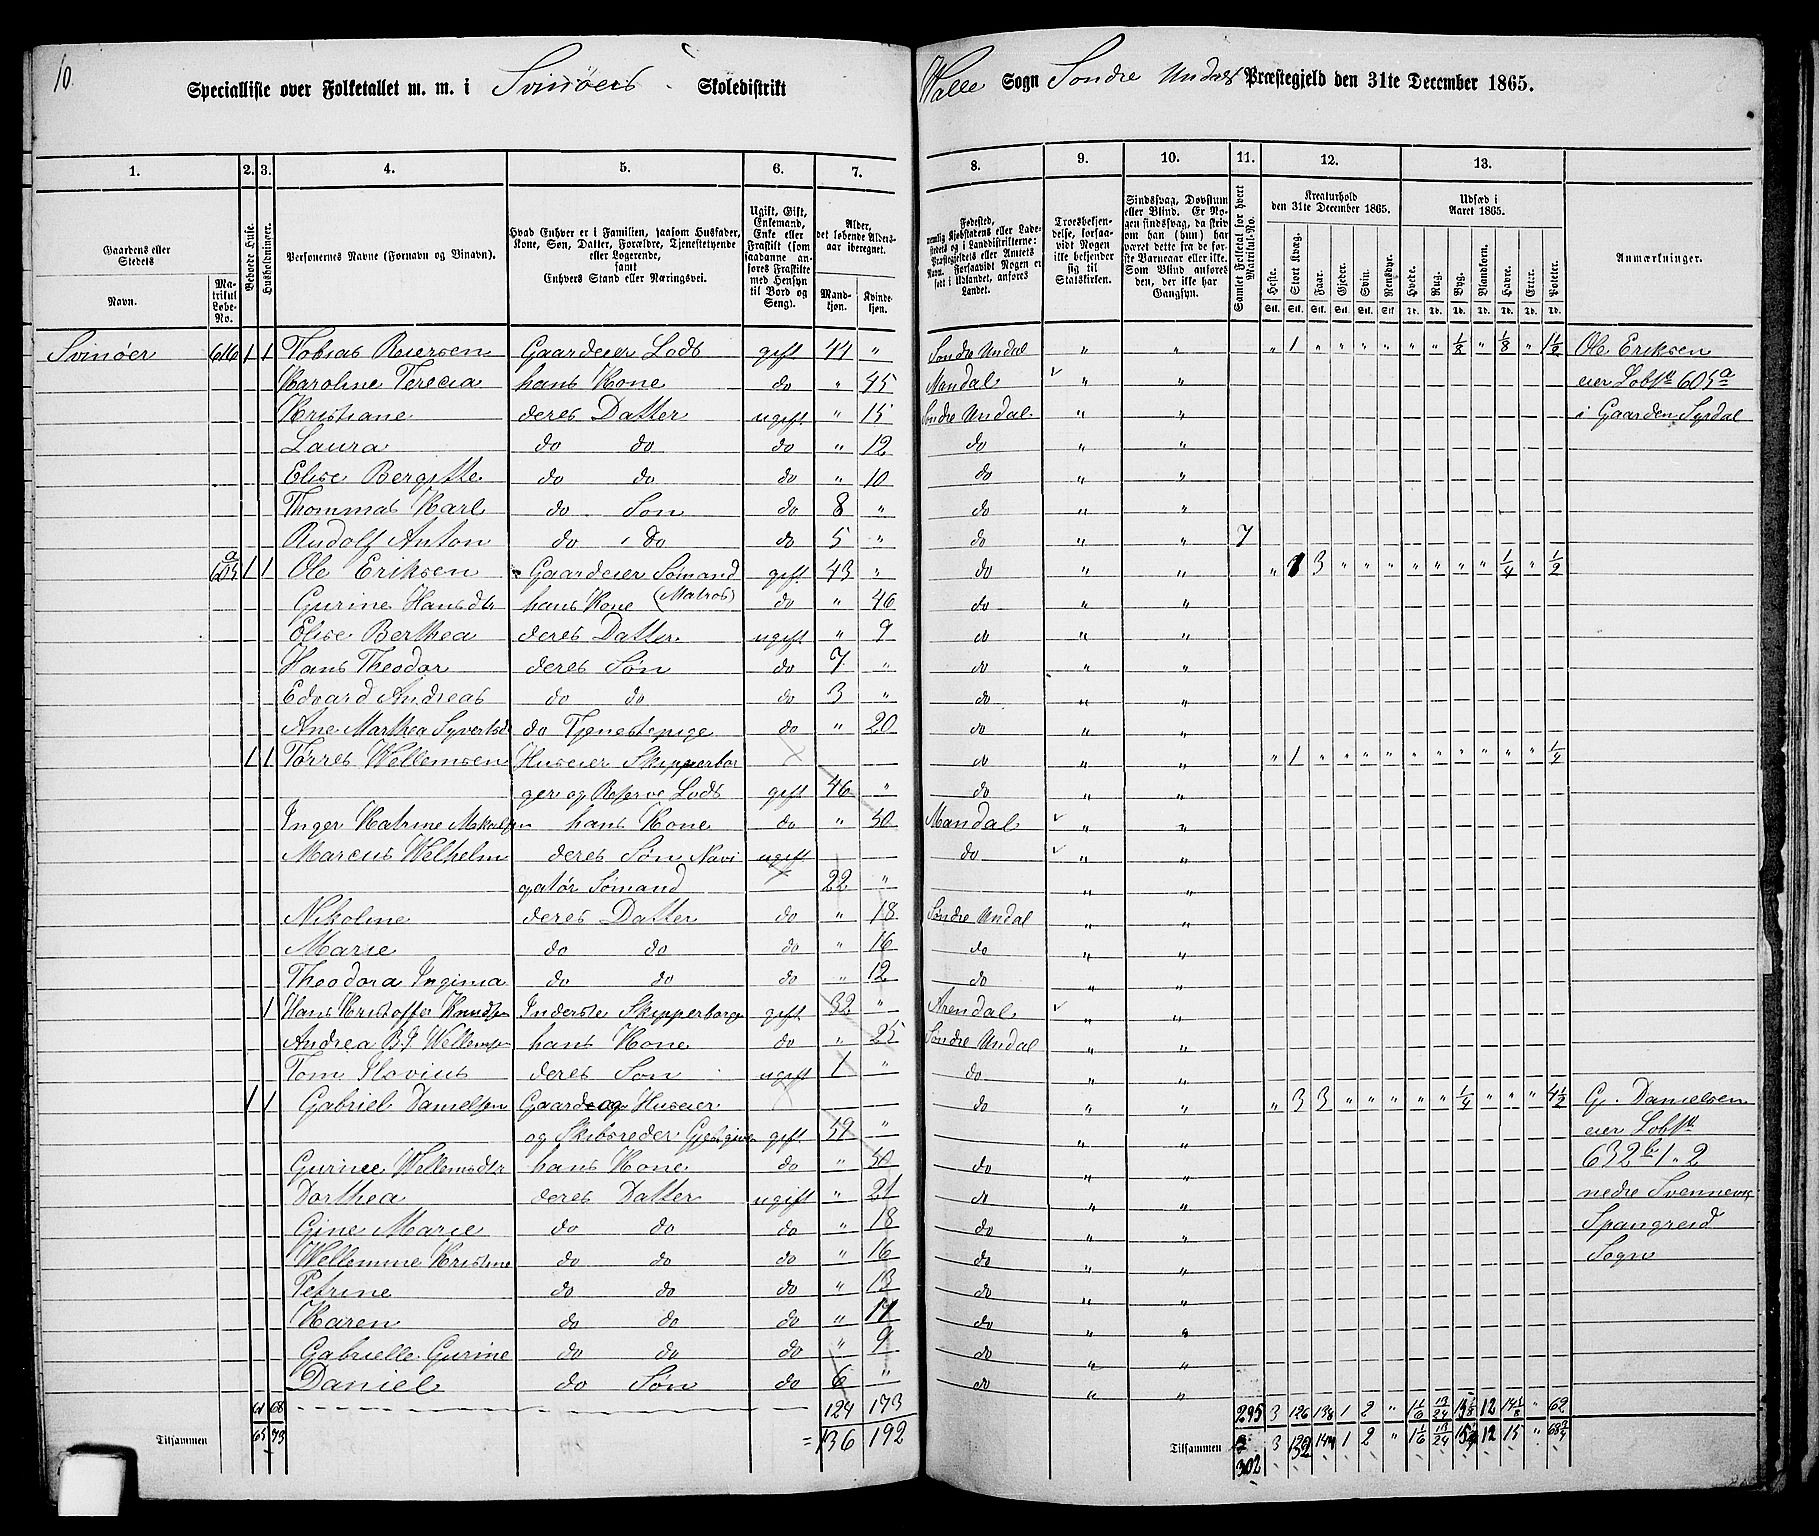 10.
Specialliste over Folketallet m. m. i Svinøers Skoledistrikt
Walle Sogn Søndre Undals Præstegjeld den 31te December 1865.
1. 2. 3. 4. 5. 6. 7. 8. 9. 10. 11. 12. 13.
Gaardens eller Stedets
Navn.
Matrikul Løbe-No.
Beboede Huse.
Husholdninger.
Personernes Navne (Fornavn og Tilnavn).
Hvad Enhver er i Familien, saasom Husfader, Kone, Søn, Datter, Forældre, Tjenestetyende eller Logerende,
samt
Enhvers Stand eller Næringsvei.
Ugift, Gift, Enkemand, Enke eller Fraskilt (som saadanne anføres Fraskilte med Hensyn til Bord og Seng).
Alder, det løbende Aldersaar iberegnet.
Mandkjøn. Kvindekjøn.
Fødested,
Troesbekjendelse, forsaavidt Nogen ikke bekjender sig til Statskirken.
Samlet Folketal for hvert Matrikul-No.
Kreaturhold den 31te December 1865.
Heste. Stort Kvæg. Faar. Gjeder. Svin. Rensdyr.
Udsæd i Aaret 1865.
Hvede. Rug. Byg. Blandkorn. Havre. Erter. Poteter.
Anmærkninger.
Svinøer 616 1 1 Tobias Reiersen Gaardeier Lods gift 44 " Søndre Undal " " " 1 " " " " " " 1/8 " 1/8 " 1 1/2 Ole Eriksen
Karoline Terecia hans Kone do " 45 Mandal " " eier Løb№ 605 a
Kristiane deres Datter ugift " 15 Søndre Undal " " i Gaarden Syrdal
Laura do do do " 12 do " "
Elise Bergitte do do do " 10 do " "
Thommas Karl do Søn do 8 " do " "
Rudolf Anton do do do 5 " do " " 7
605 a 1 1 Ole Eriksen Gaardeier Sømand gift 43 " do " " " 1 3 " " " " " " " 1/4 " 1/2
Gurine Hansdtr hans Kone (Matros) do " 46 do " "
Elise Berthea deres Datter ugift " 9 do " "
Hans Theodor deres Søn do 7 " do " "
Edvard Andreas do do do 3 " do " "
Ane Marthea Syvertsd do Tjenestepige do " 20 do " "
1 1 Tørres Wellemsen Huseier Skipperbor do " " " 1 " " " " " " " " " " 1/4
ger og Reserve Lods gift 46 " do " "
Inger Katrine hans Kone do " 50 Mandal " "
Marcus Welhelm deres Søn Navi ugift do " "
gatør Sømand 22 " " "
Nikoline deres Datter do " 18 Søndre Undal " "
Marie do do do " 16 do " "
Theodora Ingima do do do " 12 do " "
1 Hans Kristoffer Knudsen Inderste Skipperborge gift 32 " Arendal " "
Andrea B. J. Wellemsen hans Kone do " 25 Søndre Undal " "
Tom Slovius deres Søn ugift 1 " do " "
1 1 Gabriel Danielsen Gaard og Huseier do " " " 3 3 " " " " " 1/4 " " " 4 1/2 G. Danielsen
og Skibsreder Gjestgiver gift 59 " " " eier Løb№
Gurine Wellemsdtr hans Kone do " 50 do " " 632 b 1 " 2
Dorthea deres Datter ugift " 21 do " " nedre Svennevig
Gine Marie do do do " 18 do " " Spangreid
Wellemine Kristine do do do " 16 do " " Sogn
Petrine do do do " 13 do " "
Karen do do do " 11 do " "
Gabrielle Gurine do do do " 9 do " "
Daniel do Søn do 6 " do " "
61 68 124 173 295 3 126 138 1 2 " 1 1/6 13/24 12 14 1/8 " 62
Tilsammen 65 73 = 136 192 Tilsammen 3 132 144 1 2 " 1 1/6 13/24 12 15 " 68 3/4
302